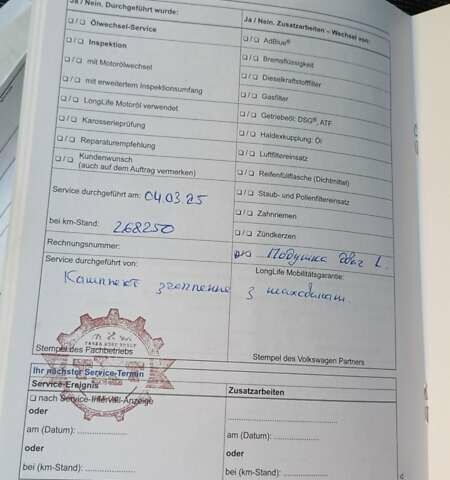 Ja / Nein. Durchgeführt wurde:
❑ / ❑ Ölwechsel-Service
❑ / ❑ Inspektion
❑ / ❑ mit Motorölwechsel
❑ / ❑ mit erweitertem Inspektionsumfang
❑ / ❑ LongLife Motoröl verwendet
❑ / ❑ Karosserieprüfung
❑ / ❑ Reparaturempfehlung
❑ / ❑ Kundenwunsch
(auch auf dem Auftrag vermerken)
Service durchgeführt am: 04.03.25
bei km-Stand: 268250
Rechnungsnummer:
Service durchgeführt von:
Ja / Nein. Zusatzarbeiten – Wechsel von:
❑ / ❑ AdBlue®
❑ / ❑ Bremsflüssigkeit
❑ / ❑ Dieselkraftstofffilter
❑ / ❑ Gasfilter
❑ / ❑ Getriebeöl: DSG®, ATF
❑ / ❑ Haldexkupplung: Öl
❑ / ❑ Luftfiltereinsatz
❑ / ❑ Reifenfüllflasche (Dichtmittel)
❑ / ❑ Staub- und Pollenfiltereinsatz
❑ / ❑ Zahnriemen
❑ / ❑ Zündkerzen
Подушка двиг L.
LongLife Mobilitätsgarantie:
Комплект зчеплення з маховиком.
Stempel des Fachbetriebs
Stempel des Volkswagen Partners
Ihr nächster Service-Termin
Service-Ereignis
❑ nach Service-Intervall-Anzeige
oder
am (Datum):
oder
bei (km-Stand):
Zusatzarbeiten
am (Datum):
oder
bei (km-Stand):